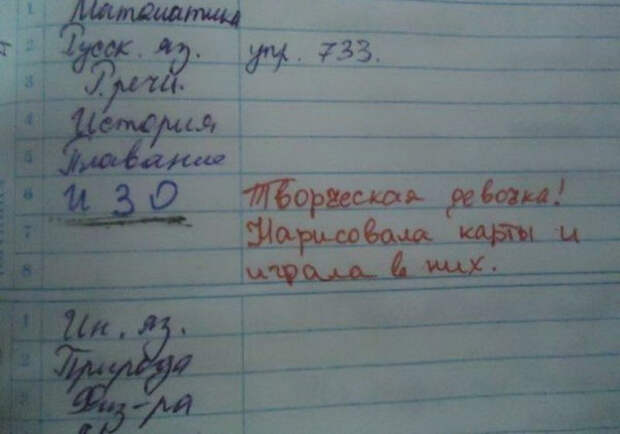 1 Математика
2 Русск. яз. упр. 733.
3 Р.речи.
4 История
5 Плавание
6 ИЗО Творческая девочка!
7 Нарисовала карты и
8 играла в них.
1 Ин. яз.
2 Природа
3 Физ-ра